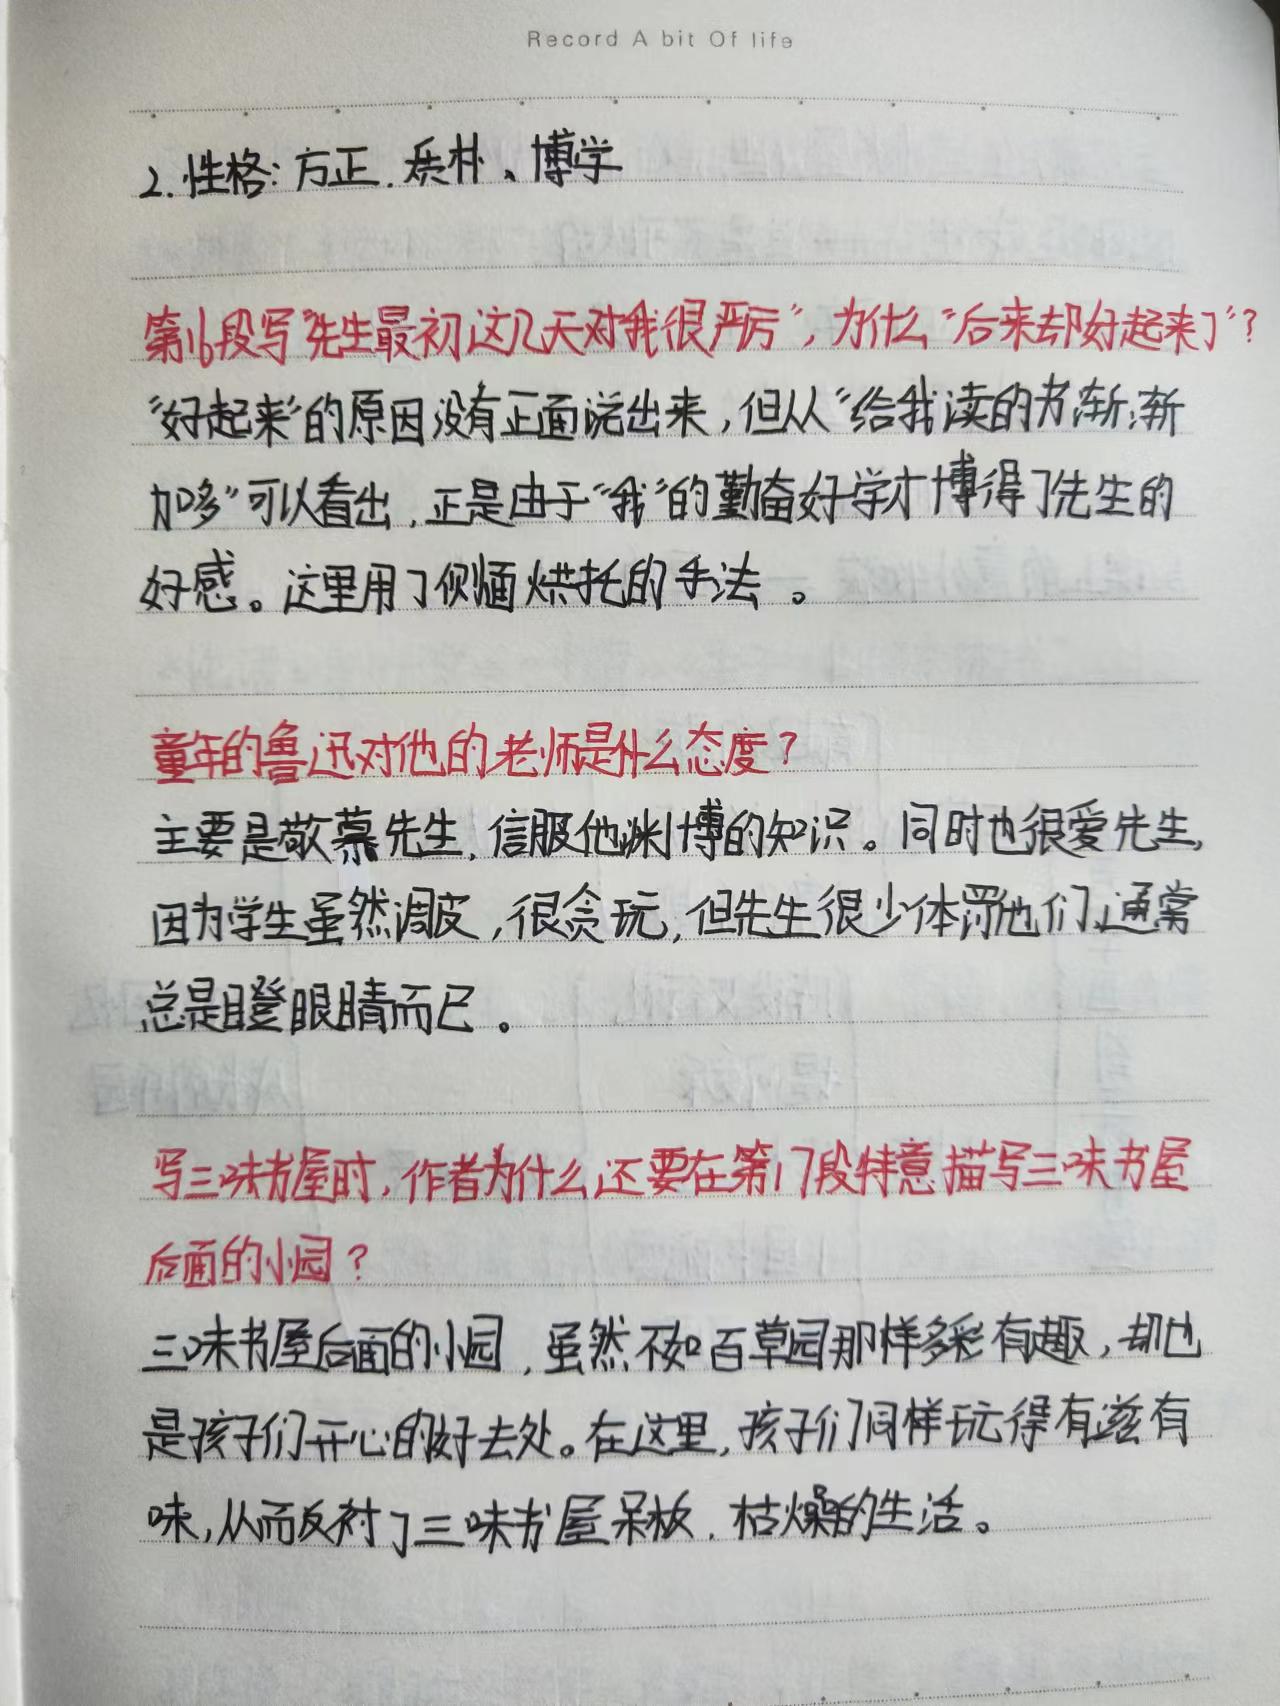 Record A bit Of life
2. 性格：方正、质朴、博学
第16段写"先生最初这几天对我很严厉"，为什么"后来却好起来了"？
"好起来"的原因没有正面说出来，但从"给我读的书渐渐
加多"可以看出，正是由于"我"的勤奋好学才博得了先生的
好感。这里用了侧面烘托的手法。
童年的鲁迅对他的老师是什么态度？
主要是敬慕先生，信服他渊博的知识。同时也很爱先生，
因为学生虽然调皮，很贪玩，但先生很少体罚他们，通常
总是瞪眼睛而已。
写三味书屋时，作者为什么还要在第17段特意描写三味书屋
后面的小园？
三味书屋后面的小园，虽然不如百草园那样多彩有趣，却也
是孩子们开心的好去处。在这里，孩子们同样玩得有滋有
味，从而反衬了三味书屋呆板、枯燥的生活。